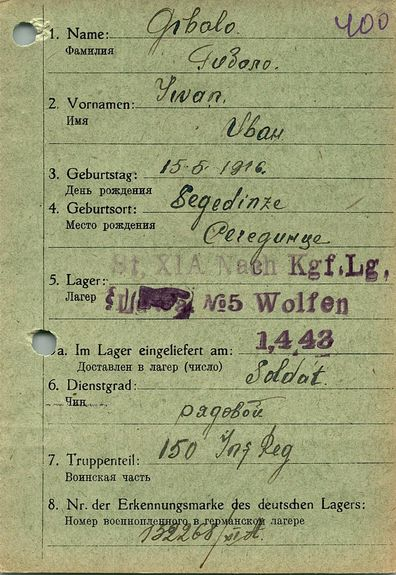 400
1. Name: Gibalo.
Фамилия
Гибало.
2. Vornamen: Iwan.
Имя
Иван
3. Geburtstag: 15-5-1916.
День рождения
4. Geburtsort: Segedinze
Место рождения
Сегединце
St. XIA Nach Kgf.Lg.
5. Lager:
Лагерь
№5 Wolfen
1.4.43
a. Im Lager eingeliefert am:
Доставлен в лагер (число)
6. Dienstgrad: Soldat.
Чин
рядовой
7. Truppenteil: 150 Inf Reg
Воинская часть
8. Nr. der Erkennungsmarke des deutschen Lagers:
Номер военнопленного в германском лагере
132268/XI A.